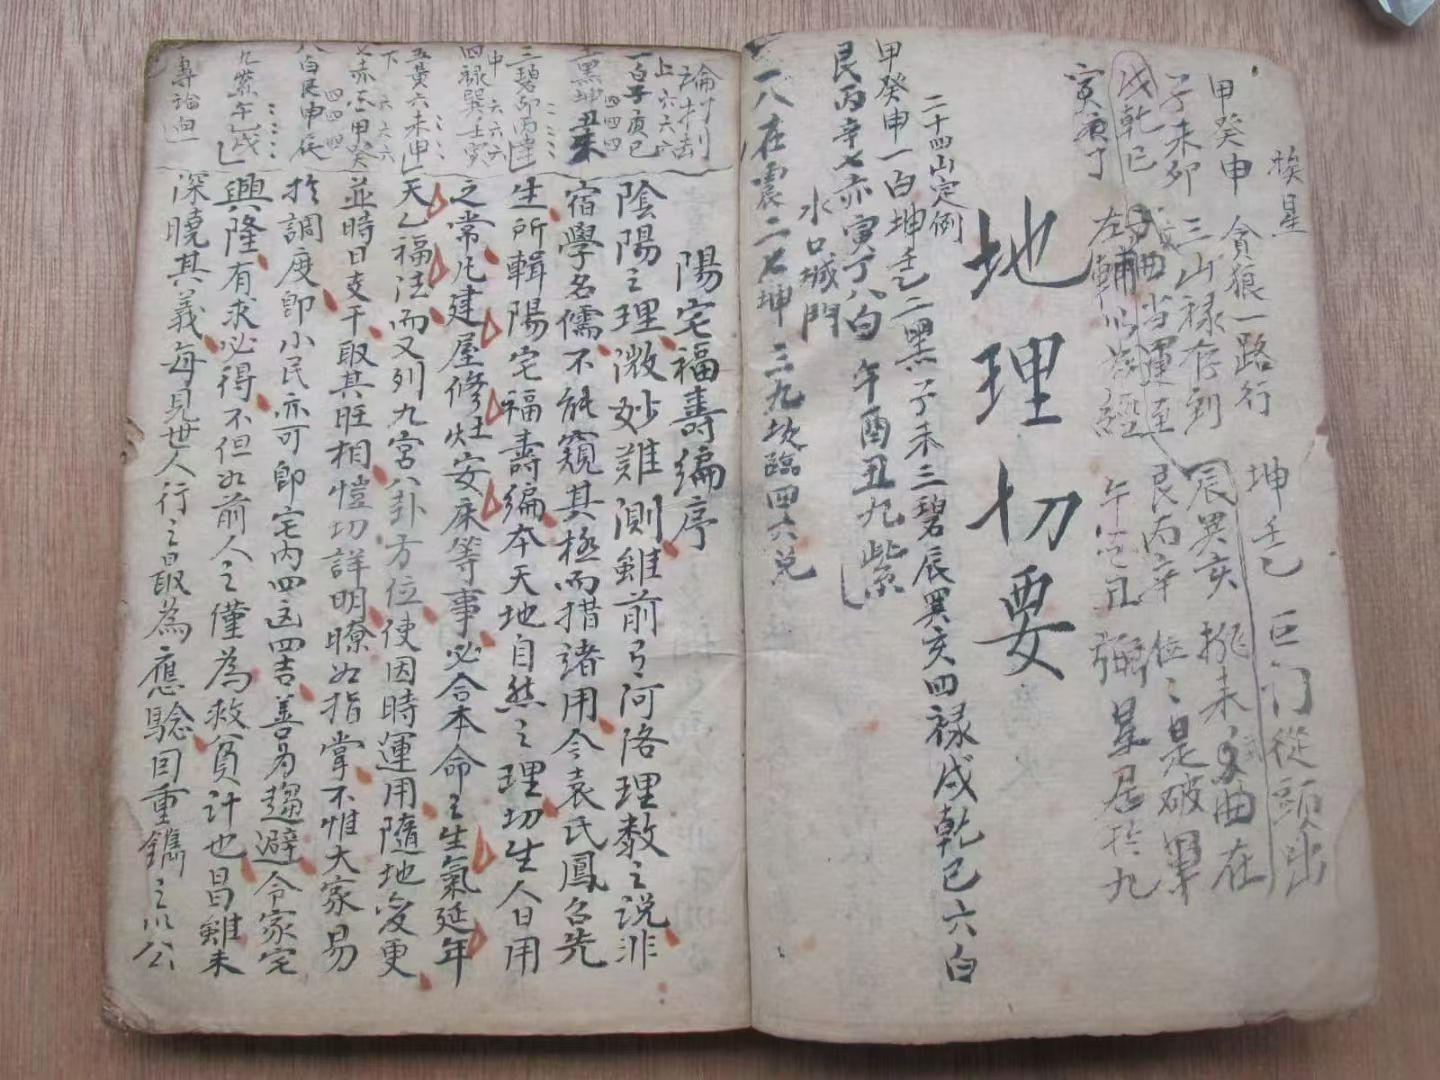 挨星
甲癸申 貪狼一路行 坤壬乙 巨门從頭出
子未卯 三山禄存到 辰巽亥 挨来 曲在
戌乾巳 曲当運至 艮丙辛 位位是破軍
寅庚丁 左輔 午酉丑 弼星居於九
地理切要
二十四山定例
甲癸申一白坤壬乙二黑子未三碧辰巽亥四禄戌乾巳六白
艮丙辛七赤寅丁八白 午酉丑九紫
水口城門
一八在震二七坤 三九坎臨四六兑
論打刦
上六六六
一白子庚巳
四四四
二黑坤丑未
三三三
三碧卯丙
中六六六
四禄巽壬寅
五黄六未申
下六六六
七赤 甲癸
四四四
八白艮申辰
九紫午 戌
專論
陽宅福壽編序
陰陽之理微妙難測雖前有河洛理数之説非
宿學名儒不能窺其極而措諸用今袁氏鳳 先
生所輯陽宅福壽編本天地自然之理切生人日用
之常凡建屋修灶安床等事必合本命之生氣延年
天乙福法而又列九宮八卦方位使因時運用隨地変更
並時日支干取其旺相愷切詳明瞭如指掌不惟大家易
於調度即小民亦可即宅内四凶四吉善為趨避令家宅
興隆有求必得不但如前人之僅為救貧計也昌雖未
深曉其義每見世人行之最為應驗因重鐫之以公